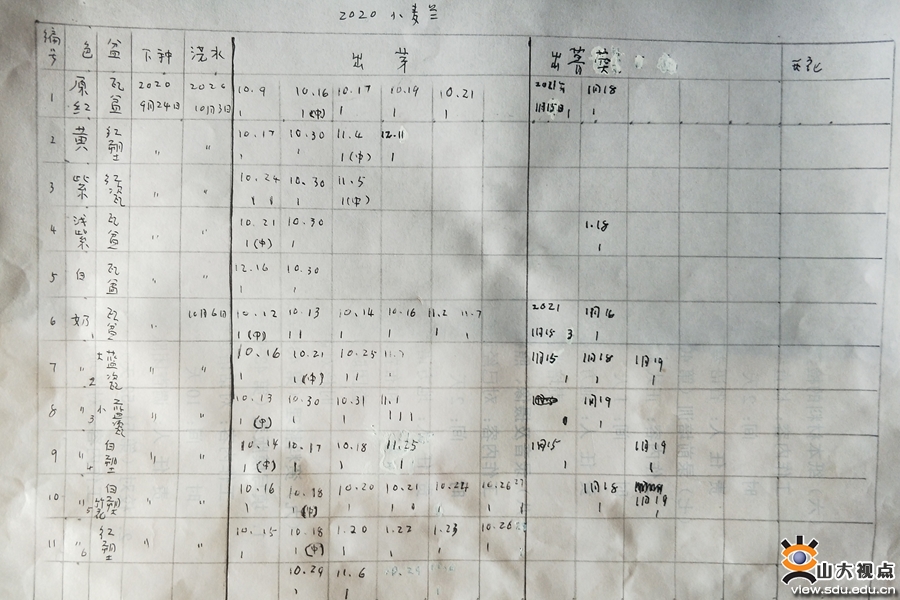 2020 小麦兰
编号 色 盆 下种 浇水 出芽 出菁葖 开花
1 原红 瓦盆 2020 9月24日 2020 10月3日 10.9 1 10.16 1(中) 10.17 1 10.19 1 10.21 1 2021年 1月15日 1 1月18 1
2 黄 红塑 〃 〃 10.17 1 10.30 1 11.4 1(中) 12.11 1
3 紫 红瓷 〃 〃 10.24 1 1 10.30 1 11.5 1(中)
4 浅紫 瓦盆 〃 〃 10.21 1(中) 10.30 1 1.18 1
5 白 瓦盆 〃 〃 12.16 1 10.30 1
6 奶1 瓦盆 〃 10月6日 10.12 1(中) 10.13 11 10.14 1 10.16 1 11.2 1 11.7 1 2021 1月15 3 1月16 1
7 〃2 大蓝瓷 〃 〃 10.16 1 10.21 1(中) 10.25 11 1月15 1 1月18 1 1月19 1
8 〃3 小蓝瓷 〃 〃 10.13 1(中) 10.30 1 10.31 1 11.1 111 1月19 1
9 〃4 白塑 〃 〃 10.14 1(中) 10.17 1 10.18 1 11.25 1 1月15 1 1月19 1
10 〃5 白塑 〃 〃 10.16 1 10.18 1(中) 10.20 1 10.21 1 10.24 1 10.26 1 1月18 1 1月19 1
11 〃6 红塑 〃 〃 10.15 1 10.18 1(中) 1.20 1 1.22 1 1.23 1 10.26 1
10.29 1 11.6 1
山大视点
www.view.sdu.edu.cn